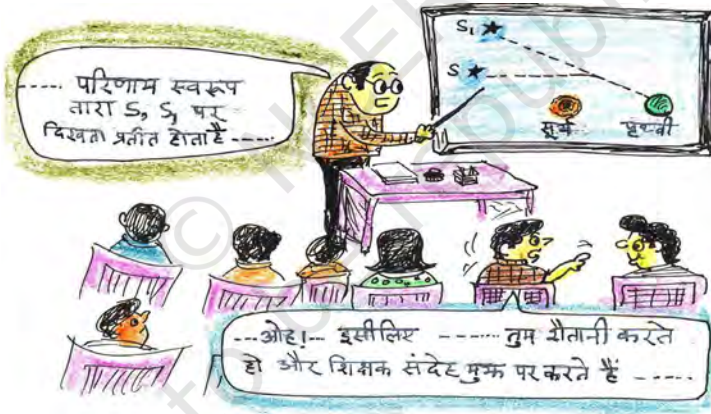 ----- परिणाम स्वरूप
तारा S, S₁ पर
दिखता प्रतीत होता है -----
S₁
S
सूर्य
पृथ्वी
---ओह!--- इसीलिए ------- तुम शैतानी करते
हो और शिक्षक संदेह मुझ पर करते हैं -----